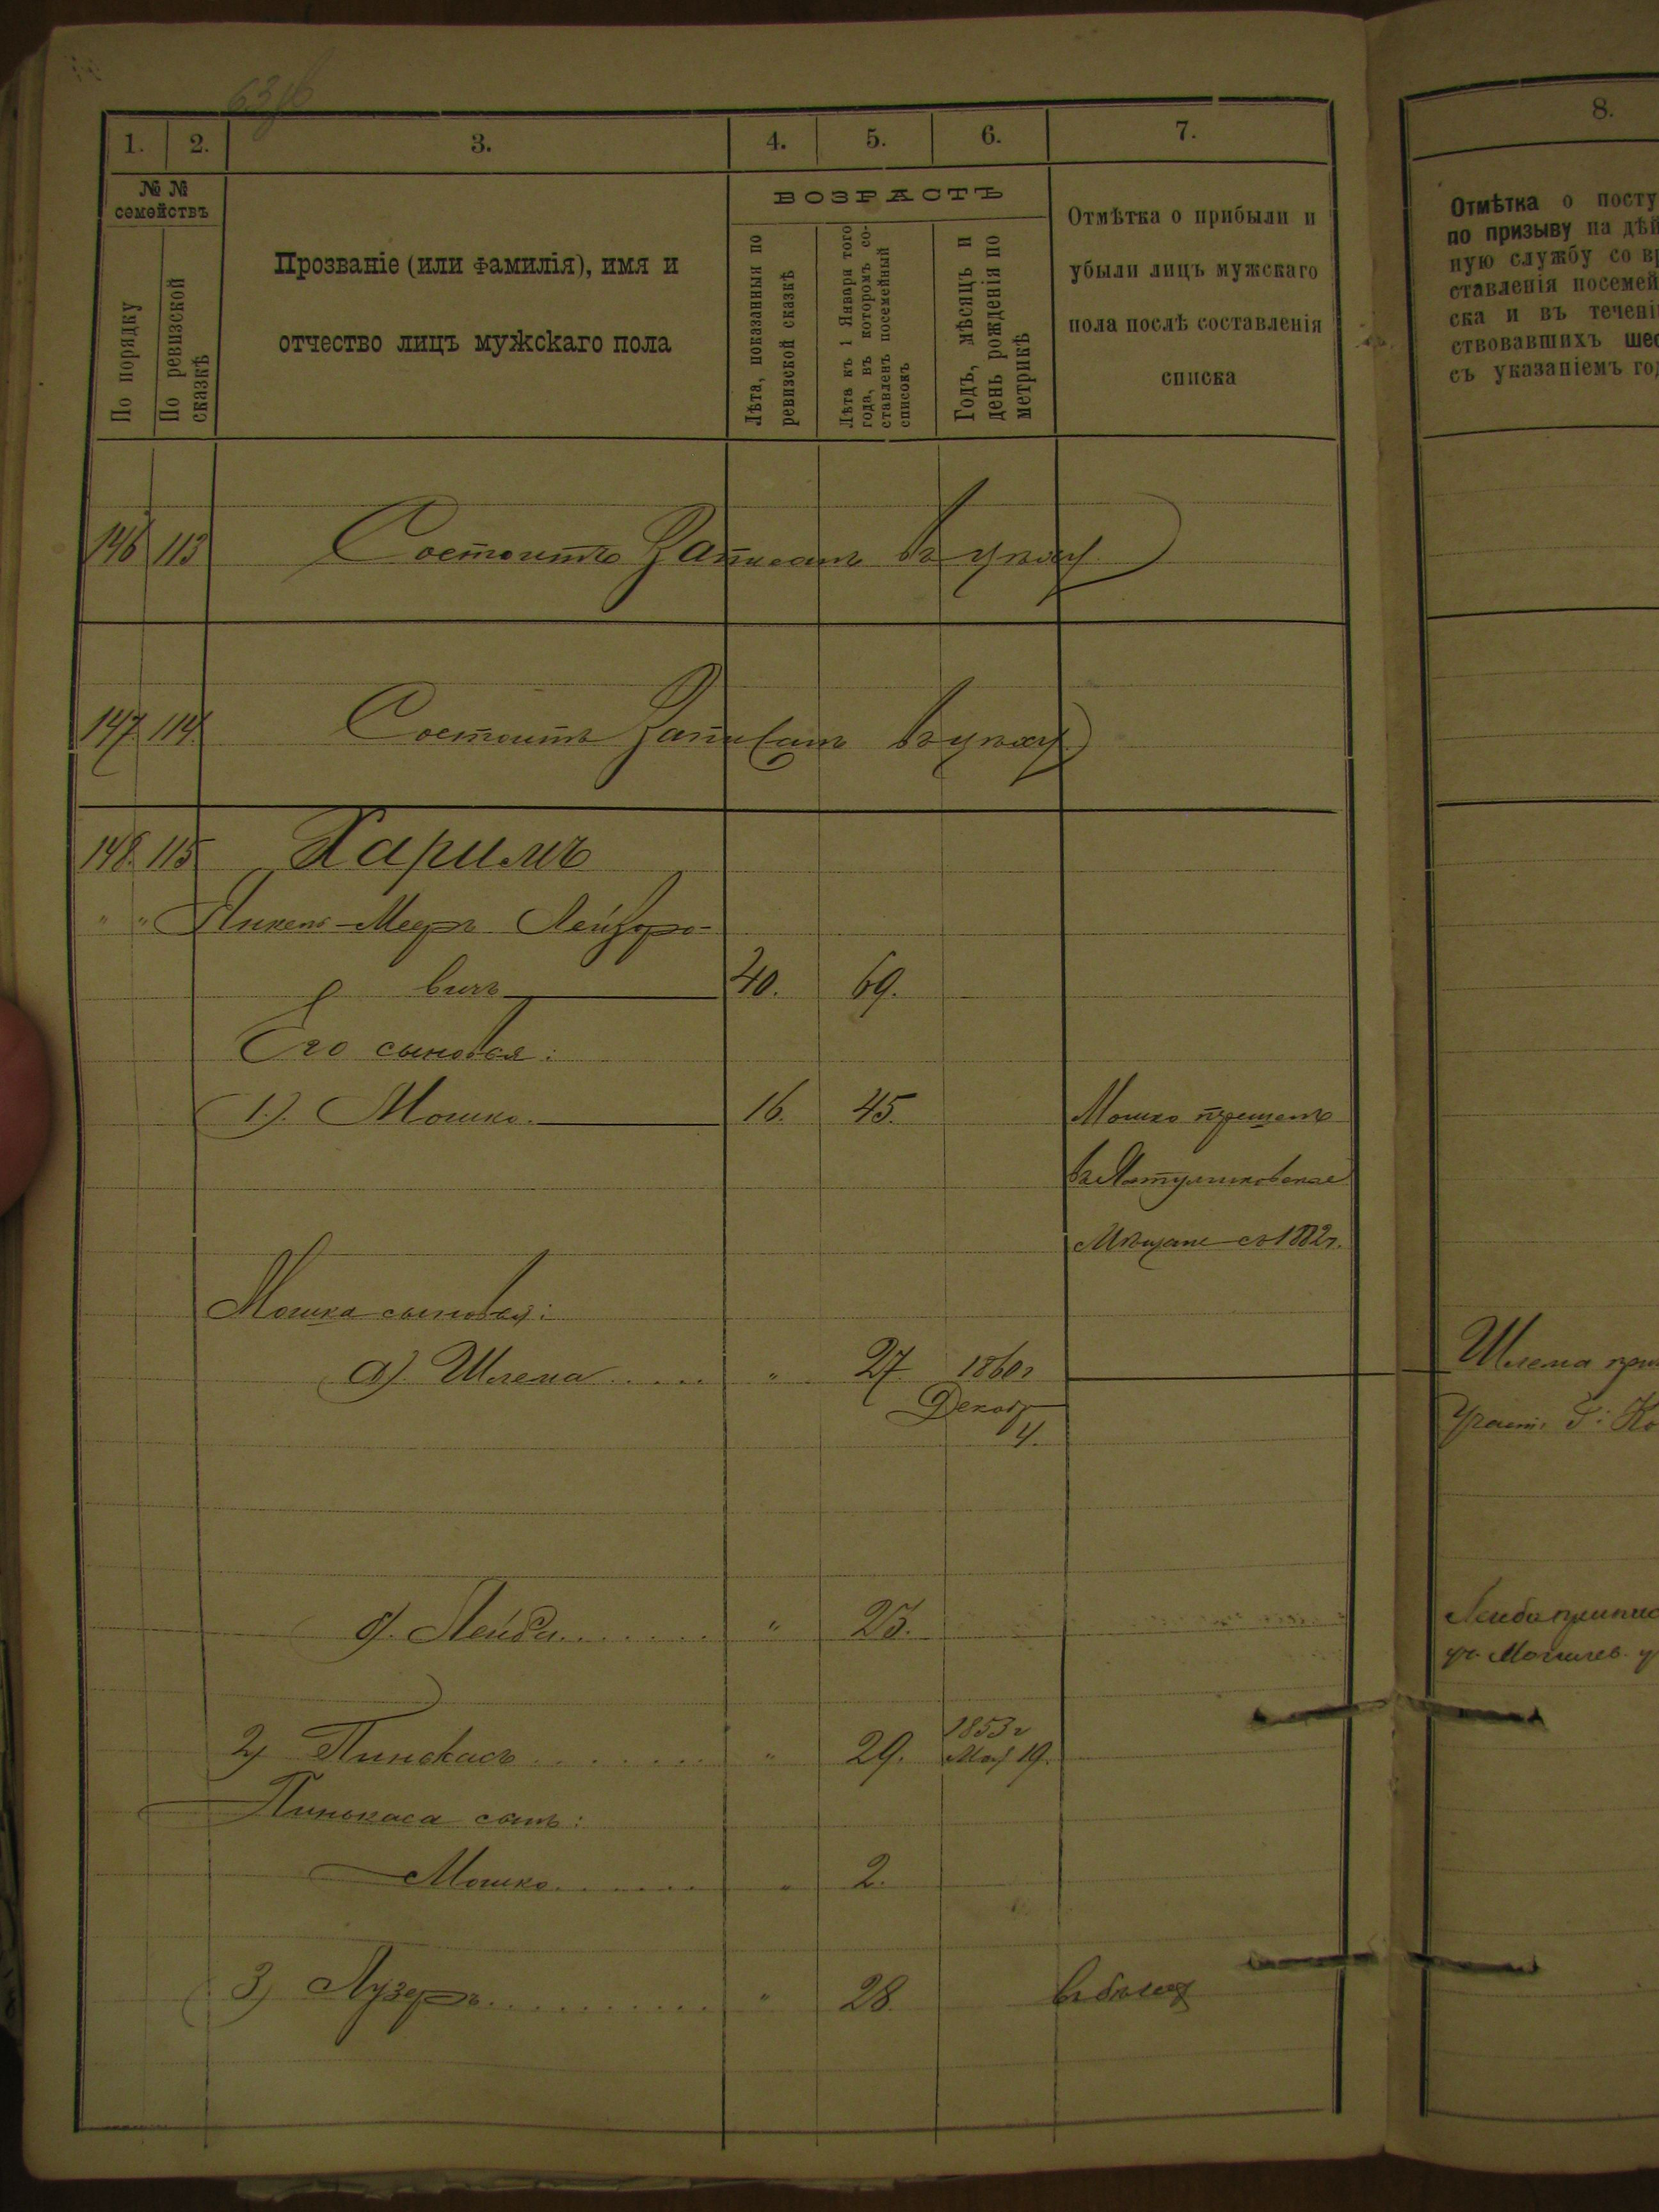 1. 2. 3. 4. 5. 6. 7.
№ №
семействъ
По порядку
По ревизской
сказкѣ
Прозваніе (или фамилія), имя и
отчество лицъ мужскаго пола
ВОЗРАСТЪ
Лѣта, показанныя по
ревизской сказкѣ
Лѣта къ 1 Января того
года, въ которомъ со-
ставленъ посемейный
списокъ
Годъ, мѣсяцъ и
день рожденія по
метрикѣ
Отмѣтка о прибыли и
убыли лицъ мужскаго
пола послѣ составленія
списка
146 113 Состоитъ Записанъ въ
147 114 Состоитъ Записанъ въ
148. 115 Харимъ
" " -Мееръ Лейзеро-
вичъ 40. 69.
Его сыновья:
1). Мошко. 16. 45. Мошко
въ
Мѣщане съ 1882г.
Мошка сыновья:
а). Шлема..... " 27 1860г
Декабр
4.
б). Лейба....... " 25.
2) Пинькасъ....... " 29. 1853г
Мая 19.
Пинькаса сынъ:
Мошко....... " 2.
3) Лузеръ........... " 28
8.
Отмѣтка о посту
по призыву на дѣй
ную службу со вр
ставленія посемей
ска и въ теченіи
ствовавшихъ шес
съ указаніемъ год
Шлема при
Участ. Г. Ко
Лейба припис
уч. Могилев. у